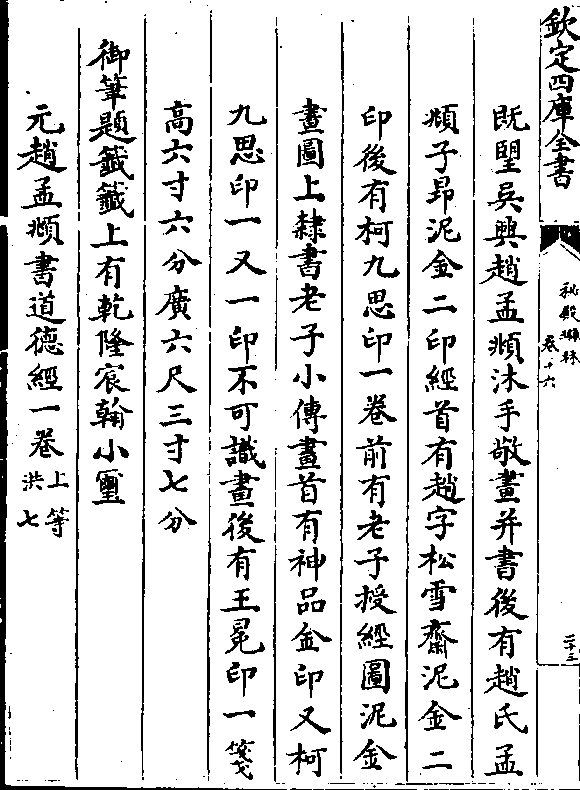 欽定四庫全書
秘殿珠林
卷十六
二十三
既望吳興趙孟頫沐手敬畫并書後有趙氏孟
頫子昻泥金二印經首有趙字松雪齋泥金二
印後有柯九思印一卷前有老子授經圖泥金
畫圖上隸書老子小傳畫首有神品金印又柯
九思印一又一印不可識畫後有王冕印一箋
高六寸六分廣六尺三寸七分
御筆題籤籤上有乾隆宸翰小璽
元趙孟頫書道德經一卷上等洪七